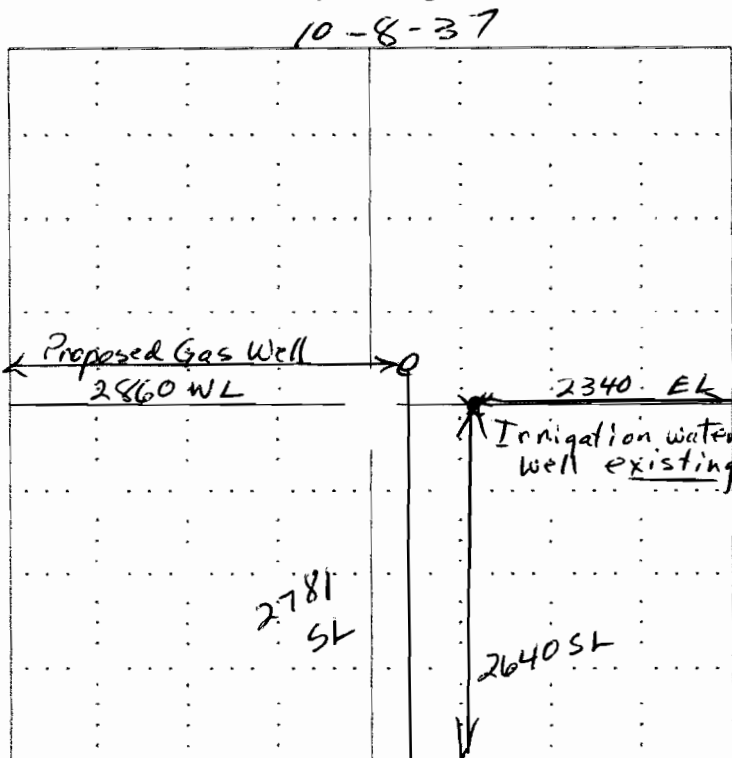 10-8-37
Proposed Gas Well
2860 WL
2340 EL
Irrigation water
well existing
2781
SL
2640 SL